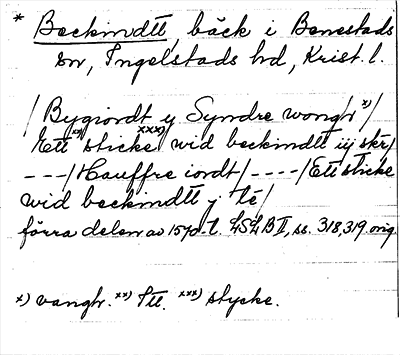 * Beckindtt, bäck i Benestads
sn, Ingelstads hd, Krist. l.
/Bygiordt y Syndre wongr x)/
Ett xx) sticke xxx) wid beckindtt iij skr/
---/Hauffre iordt/----/Ett sticke
wid beckindtt y té/
förra delen av 1570-t. LSLB II, ss. 318, 319 orig.
x) vangr. xx) Itt. xxx) stycke.